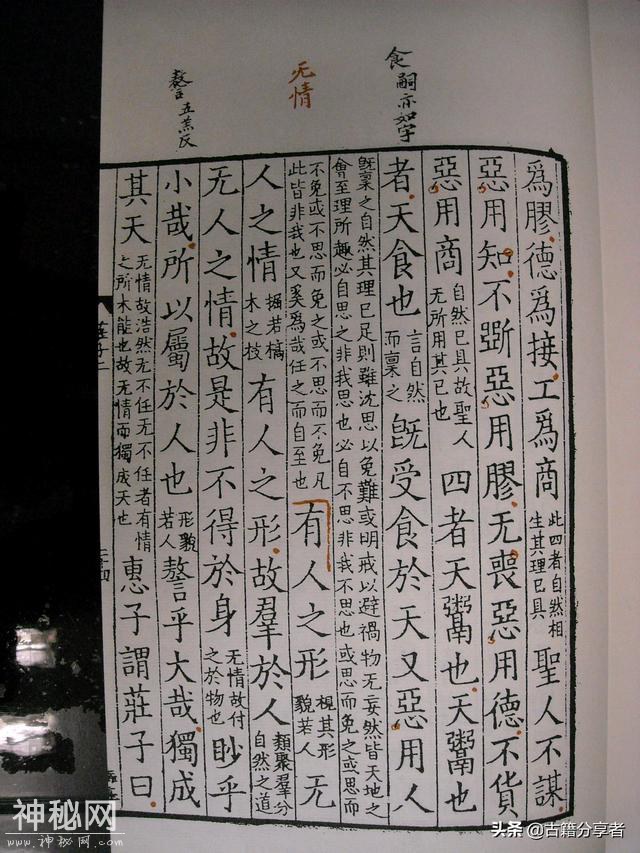 食嗣亦如字
无情
謷五羔反
爲膠德爲接工爲商此四者自然相生其理已具聖人不謀
惡用知不斲惡用膠无喪惡用德不貨
惡用商自然已具故聖人无所用其已也四者天鬻也天鬻也
者天食也言自然而稟之既受食於天又惡用人
既稟之自然其理已足則雖沈思以免難或明戒以避禍物无妄然皆天地之
會至理所趣必自思之非我思也必自不思非我不思也或思而免之或思而
不免或不思而免之或不思而不免凡此皆非我也又奚爲哉任之而自至也有人之形視其形貌若人无
人之情掘若槁木之枝有人之形故羣於人類聚羣分自然之道
无人之情故是非不得於身无情故付之於物也眇乎
小哉所以屬於人也形貌若人謷乎大哉獨成
其天无情故浩然无不任无不任者有情之所木能也故无情而獨成天也惠子謂莊子曰
莊子二
神秘网
www.神秘网.com
头条 @古籍分享者